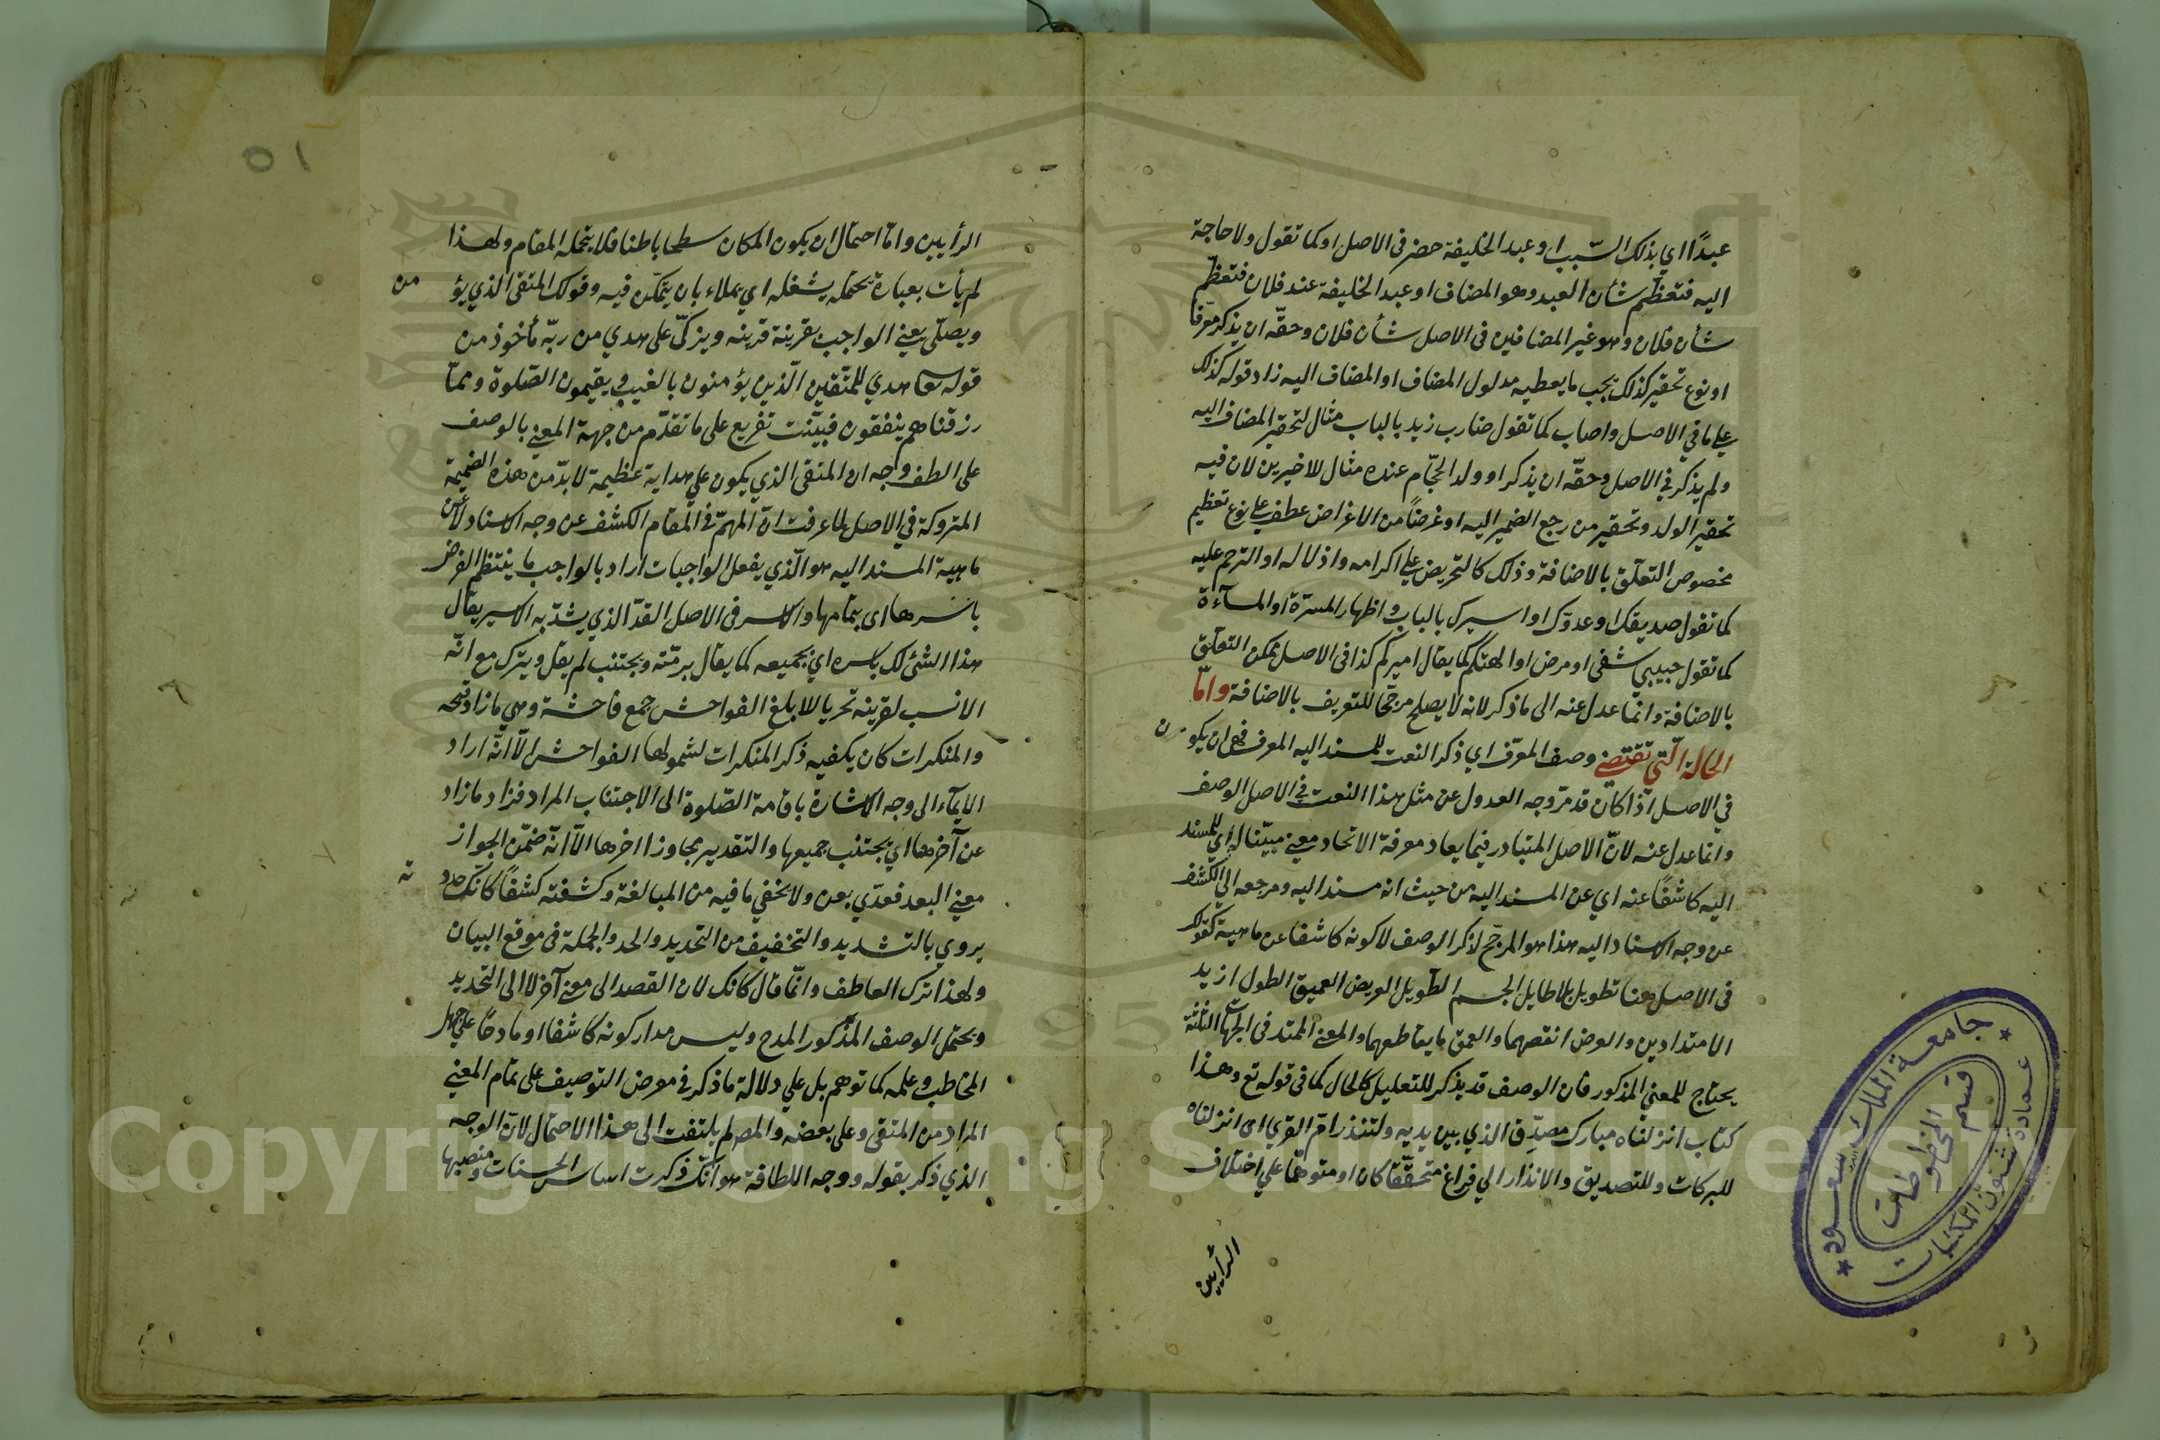 عبدًا اي بذلك السّبب او عبد الخليفة حضر في الاصل او كما تقول ولا حاجة
اليه فتعظّم شأن العبد وهو المضاف او عبد الخليفة عند فلان فتعظّم
شأن فلان وهو غير المضافين في الاصل شأن فلان وحقّه ان يذكر معرّفا
او نوع تحقير كذلك بجب ما يعطيه مدلول المضاف او المضاف اليه زاد قوله كذلك
علي ما في الاصل واصاب كما تقول ضارب زيد بالباب مثال لتحقير المضاف اليه
ولم يذكر في الاصل وحقّه ان يذكر او ولد الحجّام عنده مثال للاخيرين لان فيه
تحقير الولد وتحقير من رجع الضمير اليه او غرضًا من الاغراض عطف علي نوع تعظيم
مخصوص التعلّق بالاضافة وذلك كالتحريض علي اكرامه واذلاله او الترحم عليه
كما تقول صديقك او عدوّك او اسيرك بالباب و اظهار المسرّة او المساءة
كما تقول حبيبي شفي او مرض او الهتكم كما يقال اميركم كذا في الاصل يمكن التعلّق
بالاضافة وانّما عدل عنه الى ما ذكر لانه لا يصلح مرجّحا للتعريف بالاضافة وامّا
الحالة الّتي تقتضي وصف المعرّف اي ذكر النعت للمسند اليه المعرف فهي ان يكون
في الاصل اذا كان قد مرّ وجه العدول عن مثل هذا النعت في الاصل الوصف
وانما عدل عنه لانّ الاصل المتبادر فيما يعاد معرفة الاتحاد معني مبيّنا له اي للمسند
اليه كاشفًا عنه اي عن المسند اليه من حيث انه مسند اليه ومرجعه الي الكشف
عن وجه الاسناد اليه هذا هو المرجّح لذكر الوصف لا كونه كاشفا عن ماهية كقولك
في الاصل وهنا تطويل بلا طايل الجسم الطويل العريض العميق الطول ازيد
الامتدادين والعرض انقصهما والعمق ما يقاطعهما والمعني الممتد في الجهات الثلثة
يحتاج للمعني المذكور فان الوصف قد يذكر للتعليل كالحال كما في قوله تع وهذا
كتاب انزلناه مبارك مصدّق الذي بين يديه ولتنذر امّ القري اى انزلناه
للبركات وللتصديق والانذار الي فراغ متحقّقا كان او متوهّما علي اختلاف
الرأيين
الرأيين وامّا احتمال ان يكون المكان سطحا باطنا فلا يتحمله المقام ولهذا
لم يأت بعبارة تحتمله يشغله اي يملاء بان يتمكّن فيه وقولك المتقي الذي يؤمن
ويصلّى يعني الواجب بقرينة قرينه ويزكّى على هدي من ربّه مأخوذ من
قوله تعا هدي للمتّقين الّذين يؤمنون بالغيب ويقيمون الصّلوة وممّا
رزقناهم ينفقون فبيّنت تفريع على ما تقدّم من جهة المعني بالوصف
على الطف وجه ان المتقي الذي يكون علي هداية عظيمة لا بدّ من هذه الضميمة
المتروكة في الاصل لما عرفت انّ المهمّ في المقام الكشف عن وجه الاسناد لا عن
ماهية المسند اليه هو الّذي يفعل الواجبات اراد بالواجب ما ينتظم الفرض
باسرها اى بتمامها والاسر في الاصل القدّ الذي يشدّ به الاسير يقال
هذا الشئ لك باسره اي بجميعه كما يقال برمّته ويجتنب لم يقل ويترك مع انّه
الانسب لقرينه تحريا للابلغ الفواحش جمع فاحشة وهي ما زاد قبحه
والمنكرات كان يكفيه ذكر المنكرات لشمولها الفواحش الّا انّه اراد
الايماء الى وجه الاشارة باقامة الصّلوة الى الاجتناب المراد فزاد ما زاد
عن آخرها اي يجتنب جميعها والتقدير مجاوزا اخرها الّا انّه ضمّن الجواز
معني البعد فعدّي بعن ولا يخفي ما فيه من المبالغة وكشفته كشفًا كانّك حددته
يروي بالتشديد والتخفيف من التحديد والحد والجملة في موقع البيان
ولهذا ترك العاطف وانّما قال كانك لان القصد الى معني آخر لا الى التحديد
ويحتمل الوصف المذكور المدح وليس مدار كونه كاشفا او مادحًا علي جهل
المخاطب وعلمه كما توهم بل علي دلالة ما ذكر في معرض التوصيف على تمام المعني
المراد من المتقي وعلى بعضه والمص لم يلتفت الى هذا الاحتمال لانّ الوجه
الذي ذكر بقوله ووجه اللطافة هو انّك ذكرت اساس الحسنات ومنصبها
جامعة الملك سعود
قسم المخطوطات
عمادة شئون المكتبات
Copyright © King Saud University
1957
٥١